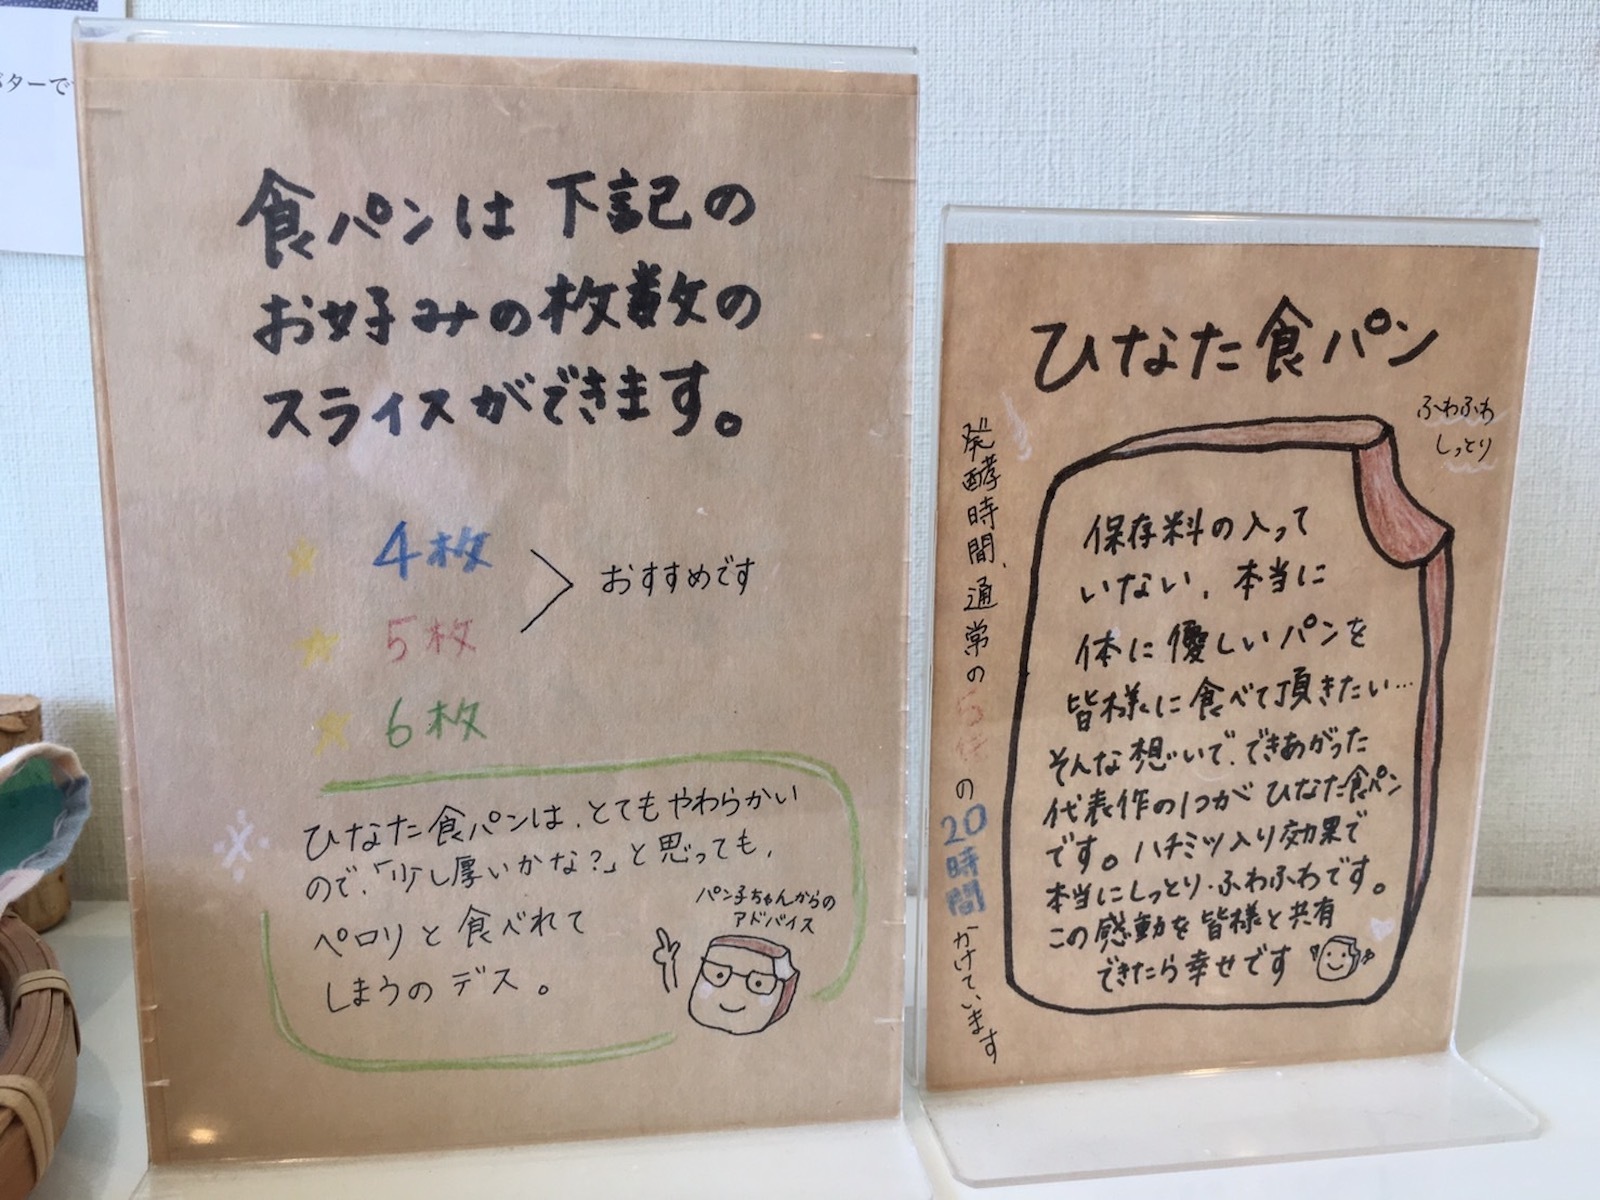 バターで
食パンは下記の
お好みの枚数の
スライスができます。
4枚
5枚
6枚
おすすめです
ひなた食パンは、とてもやわらかい
ので、「少し厚いかな?」と思っても、
ペロリと食べれて
しまうのデス。
パン子ちゃんからの
アドバイス
ひなた食パン
ふわふわ
しっとり
発酵時間、通常の5倍の20時間かけています
保存料の入って
いない、本当に
体に優しいパンを
皆様に食べて頂きたい…
そんな想いで、できあがった
代表作の1つがひなた食パン
です。ハチミツ入り効果で
本当にしっとり・ふわふわです。
この感動を皆様と共有
できたら幸せです